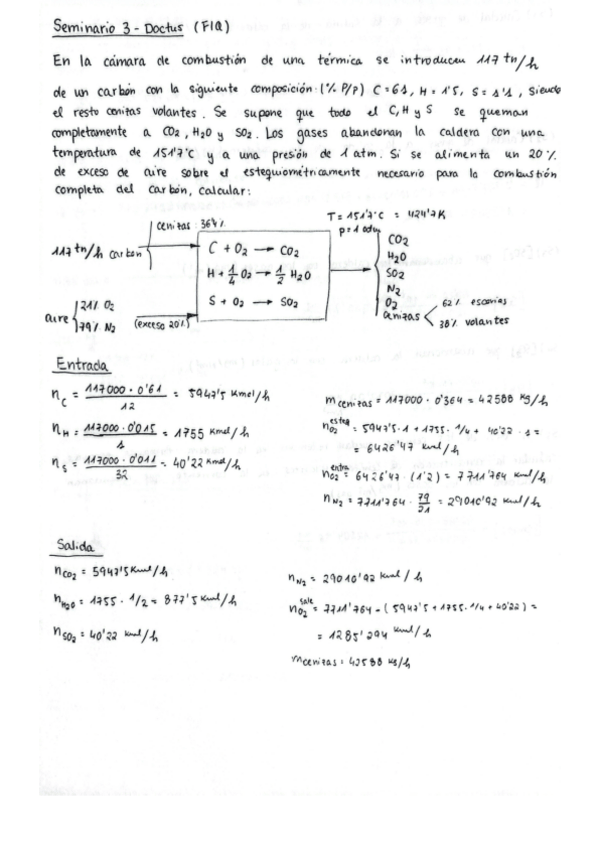 Seminario 3 - Doctus (FIQ)
En la cámara de combustión de una térmica se introducen 117 tn/h
de un carbón con la siguiente composición: (% P/P) C = 61, H = 1'5, S = 1'1, siendo
el resto cenizas volantes. Se supone que todo el C, H y S se queman
completamente a CO2, H2O y SO2. Los gases abandonan la caldera con una
temperatura de 151'7°C y a una presión de 1 atm. Si se alimenta un 20%
de exceso de aire sobre el estequiométricamente necesario para la combustión
completa del carbón, calcular:
cenizas 36'4%
T = 151'7°C = 424'7K
p = 1 atm
117 tn/h carbón
C + O2 → CO2
H + 1/4 O2 → 1/2 H2O
S + O2 → SO2
CO2
H2O
SO2
N2
O2
cenizas
62% escorias
38% volantes
aire
21% O2
79% N2
(exceso 20%)
Entrada
nC = 117000 · 0'61 / 12 = 5947'5 Kmol/h
nH = 117000 · 0'015 / 1 = 1755 Kmol/h
nS = 117000 · 0'011 / 32 = 40'22 Kmol/h
mcenizas = 117000 · 0'364 = 42588 Kg/h
nO2 esteq = 5947'5 · 1 + 1755 · 1/4 + 40'22 · 1 =
= 6426'47 Kmol/h
nO2 entra = 6426'47 · (1'2) = 7711'764 Kmol/h
nN2 = 7711'764 · 79/21 = 29010'92 Kmol/h
Salida
nCO2 = 5947'5 Kmol/h
nH2O = 1755 · 1/2 = 877'5 Kmol/h
nSO2 = 40'22 Kmol/h
nN2 = 29010'92 Kmol/h
nO2 sale = 7711'764 - (5947'5 + 1755 · 1/4 + 40'22) =
= 1285'294 Kmol/h
mcenizas = 42588 Kg/h